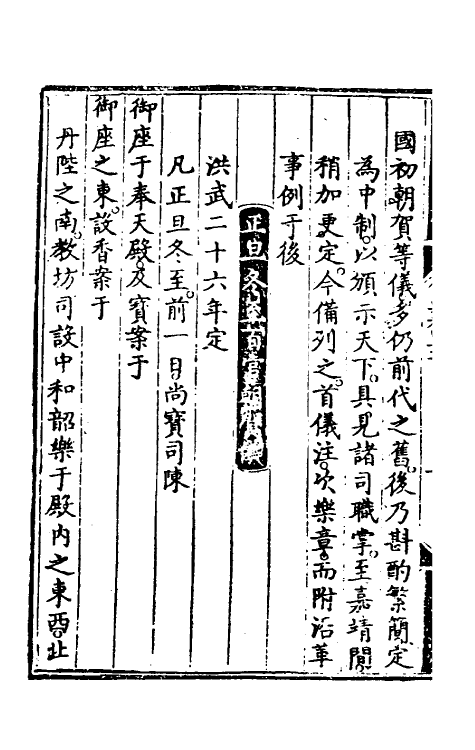 國初朝賀等儀多仍前代之舊後乃斟酌繁簡定
為中制以頒示天下具見諸司職掌至嘉靖間
稍加更定今備列之首儀注次樂章而附沿革
事例于後
正旦冬至百官朝賀儀
洪武二十六年定
凡正旦冬至前一日尚寶司陳
御座于奉天殿及寶案于
御座之東設香案于
丹陛之南教坊司設中和韶樂于殿內之東西北